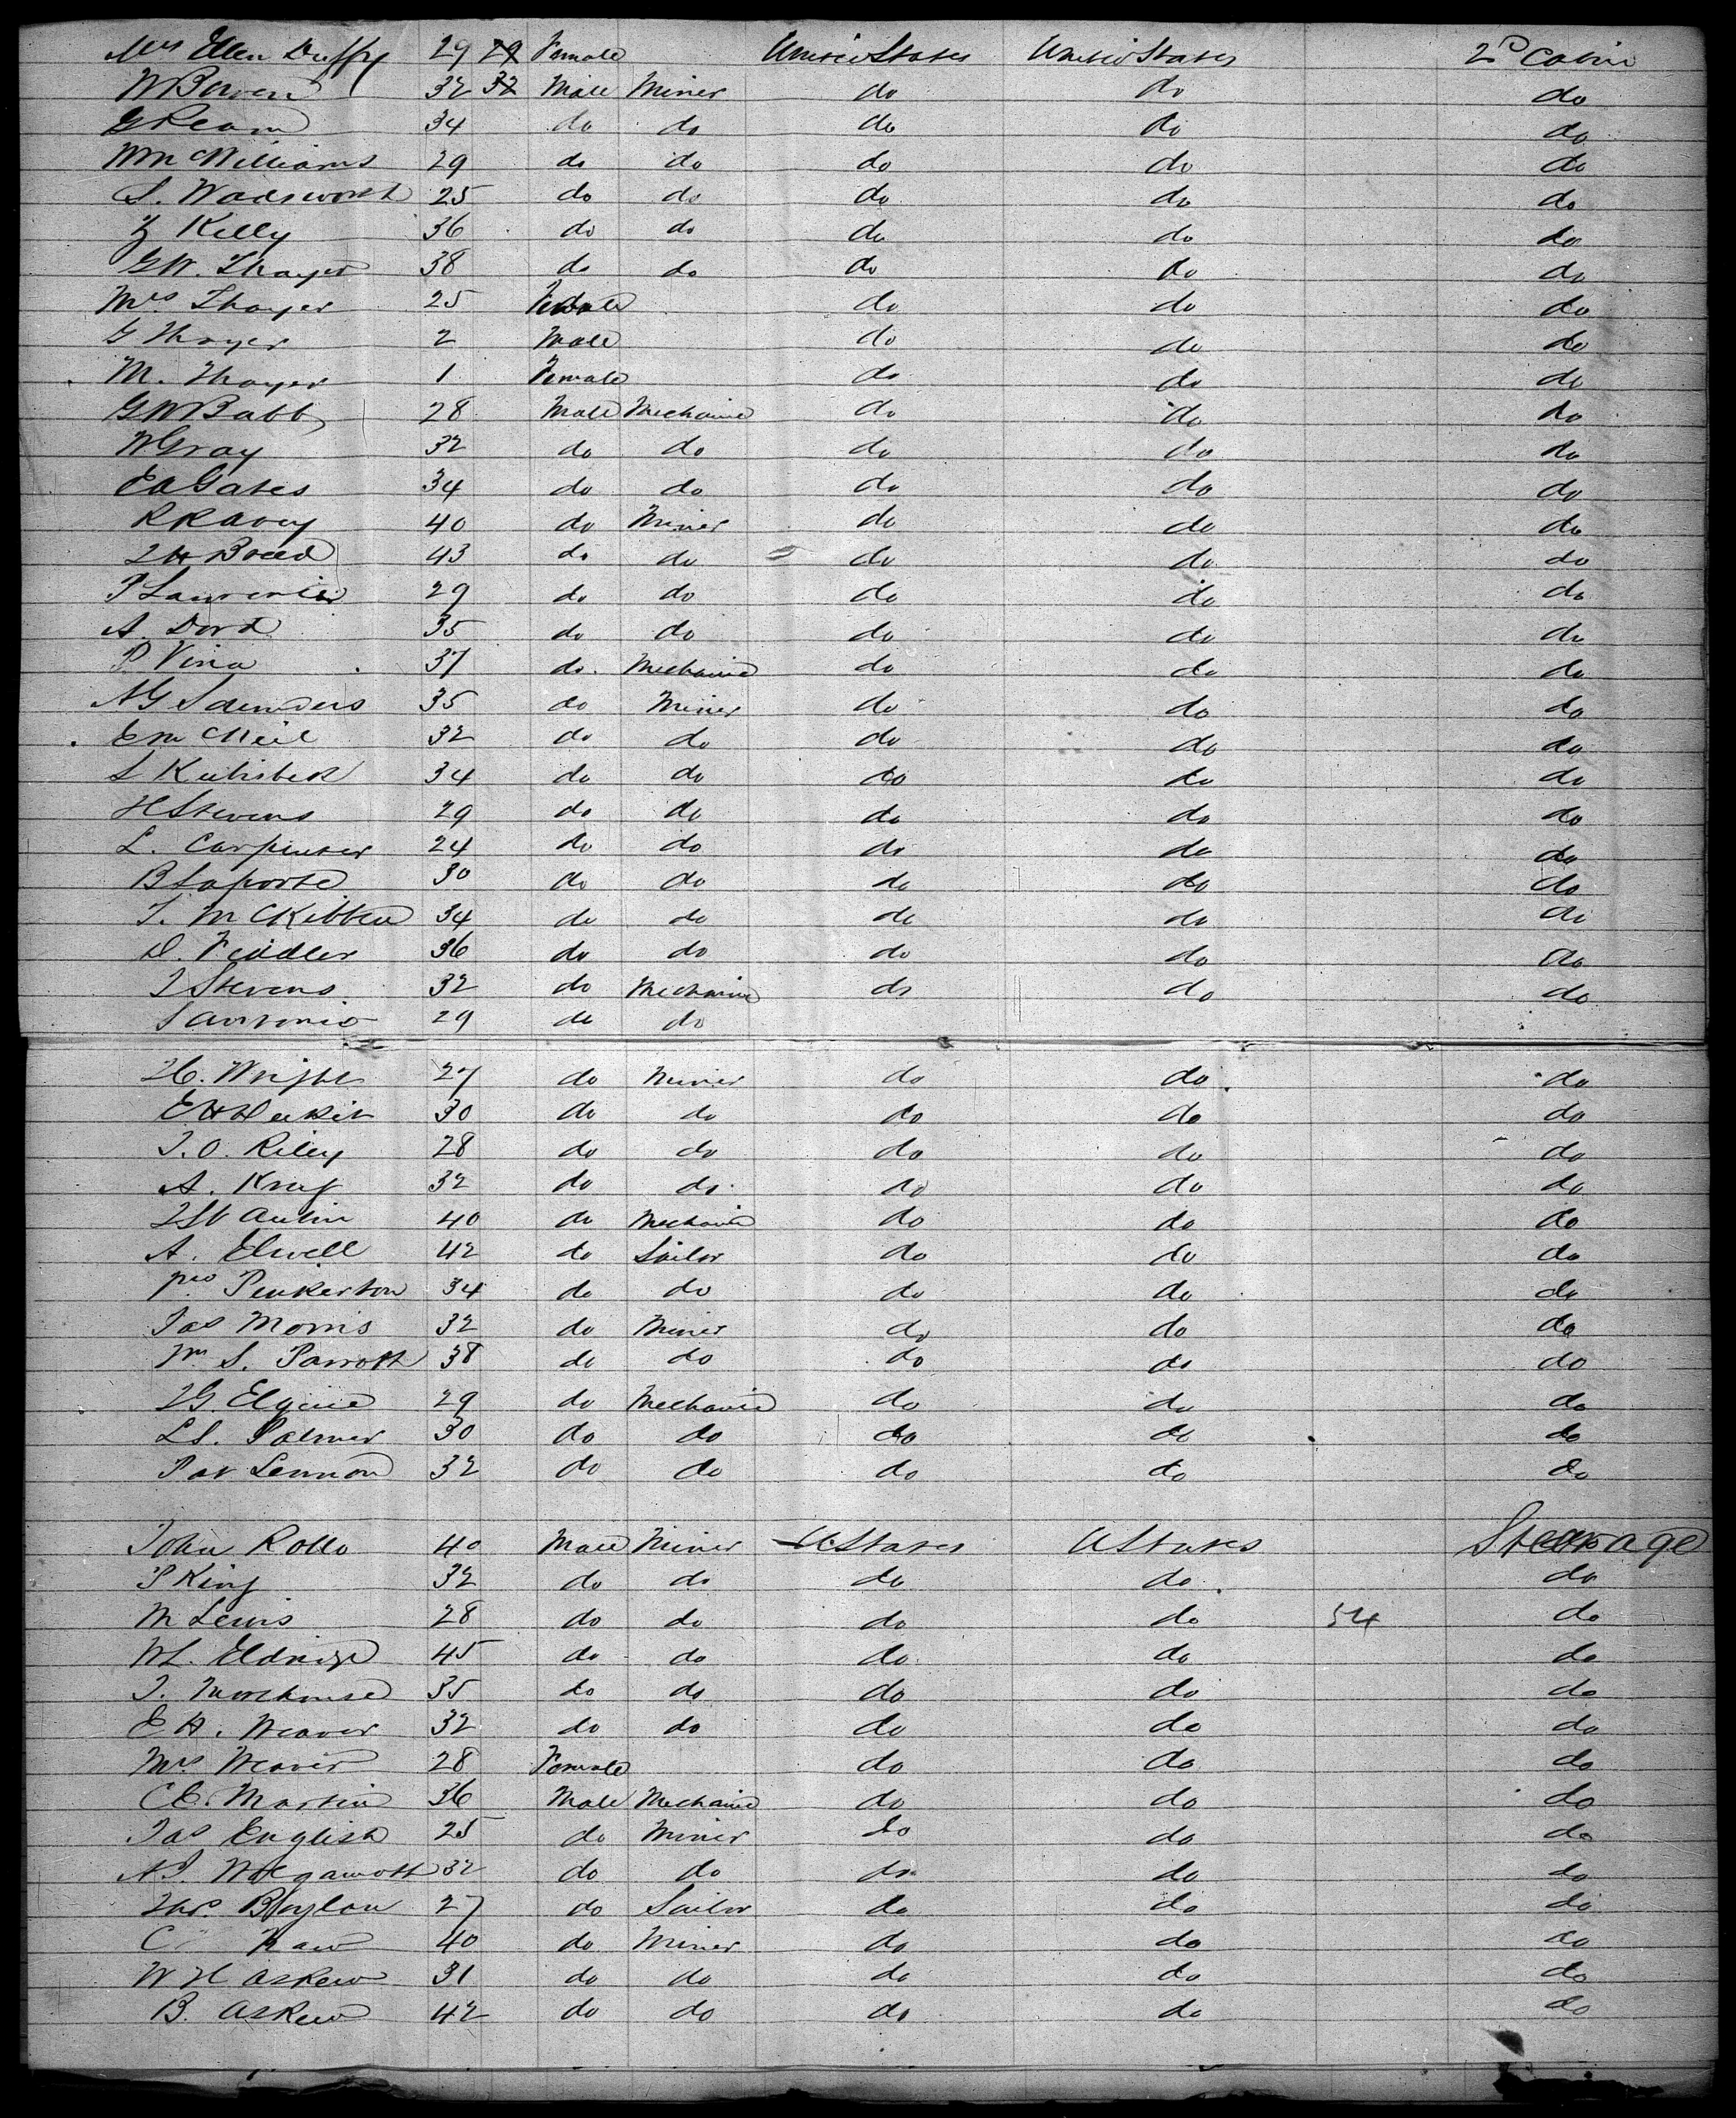 Mrs Ellen Duffy 29 29 Female United States United States 2D Cabin
W Bowen 32 32 Male Miner do do do
G Ream 34 do do do do do
Wm Williams 29 do do do do do
S. Wadsworth 25 do do do do do
Kelly 36 do do do do do
GW. Thayer 38 do do do do do
Mrs Thayer 25 Female do do do
G Thayer 2 Male do do do
M. Thayer 1 Female do do do
GW Babb 28 Male Mechanic do do do
W Gray 32 do do do do do
EA Gates 34 do do do do do
R R Avey 40 do Miner do do do
Breed 43 do do do do do
P 29 do do do do do
A. Dord 35 do do do do do
P. Vina 37 do. Mechanic do do do
AG Saunders 35 do Miner do do do
E McNeil 32 do do do do do
L 34 do do do do do
H Stevens 29 do do do do do
L. Carpenter 24 do do do do do
B Laporte 30 do do do do do
T. McKibben 34 do do do do do
D. Fiddler 36 do do do do do
J Stevens 32 do Mechanic do do do
29 do do
H. Wright 27 do Miner do do do
30 do do do do do
J. O. Riley 28 do do do do do
A. Krug 32 do do do do do
40 do Mechanic do do do
A. Elwell 42 do Sailor do do do
Pinkerton 34 do do do do do
Jas Morris 32 do Miner do do do
Wm S. Parrott 38 do do do do do
29 do Mechanic do do do
L S. Palmer 30 do do do do do
Pat Lennon 32 do do do do do
John Rollo 40 Male Miner U States U States Steerage
P King 32 do do do do do
M Lewis 28 do do do do 54 do
WL. Eldridge 45 do do do do do
J. Morehouse 35 do do do do do
E H. Weaver 32 do do do do do
Mrs Weaver 28 Female do do do
C E. Martin 36 Male Mechanic do do do
Jas English 25 do Miner do do do
32 do do do do do
Thos. Boylan 27 do Sailor do do do
C 40 do Miner do do do
W H Askew 31 do do do do do
B. Askew 42 do do do do do